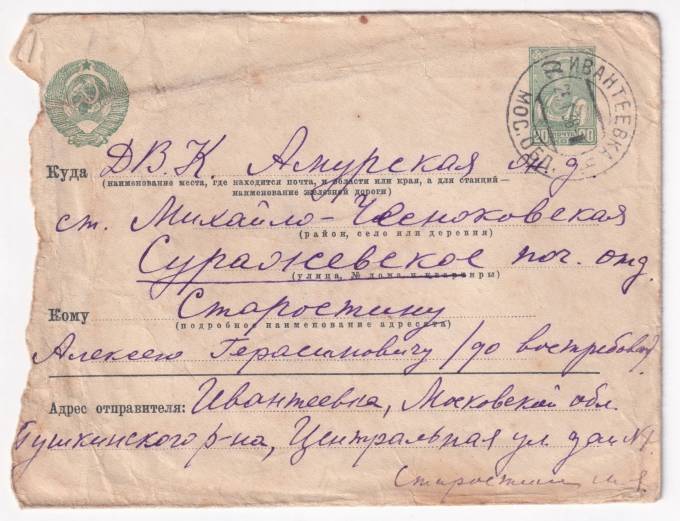 ИВАНТЕЕВКА
МОС. ОБЛ.
20 ПОЧТА 20
Куда Д.В.К. Амурская ж. д.
(наименование места, где находится почта, и области или края, а для станций—
наименование железной дороги)
ст. Михайло-Чесноковская
(район, село или деревня)
Суражевское поч. отд.
(улица, № дома и квартиры)
Кому Старостину
(подробное наименование адресата)
Алексею Герасимовичу /до востребов/
Адрес отправителя: Ивантеевка, Московской обл.
Пушкинского р-на, Центральная ул дом №
Старостин